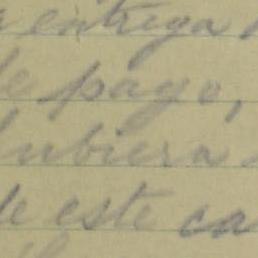 entrega
de pago,
hubiera
de este ca